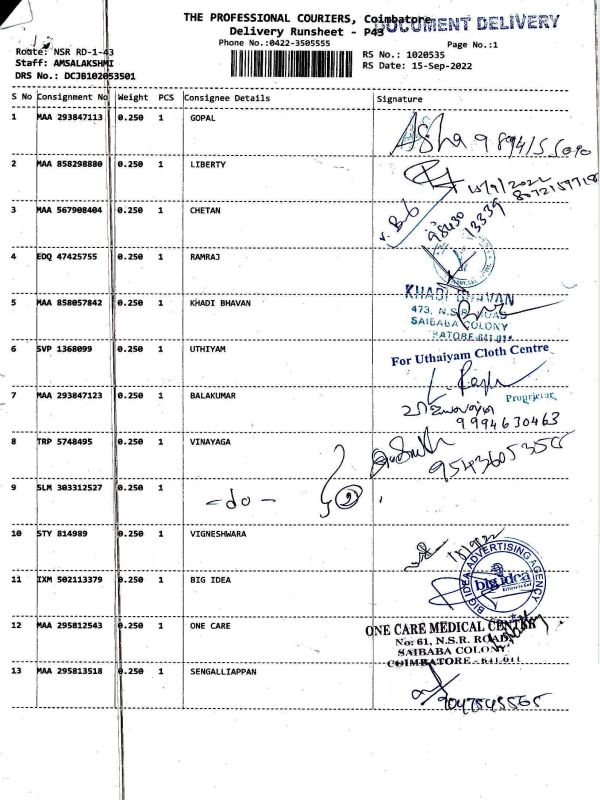 THE PROFESSIONAL COURIERS, Coimbatore
DOCUMENT DELIVERY
Delivery Runsheet - P43
Phone No.:0422-3505555
Page No.:1
Route: NSR RD-1-43
RS No.: 1020535
Staff: AMSALAKSHMI
RS Date: 15-Sep-2022
DRS No.: DCJB102053501
S No Consignment No Weight PCS Consignee Details Signature
1 MAA 293847113 0.250 1 GOPAL
Asha
2 MAA 858298880 0.250 1 LIBERTY
15/9/2022
3 MAA 567908404 0.250 1 CHETAN
98430
13339
4 EDQ 47425755 0.250 1 RAMRAJ
5 MAA 858057842 0.250 1 KHADI BHAVAN
KHADI BHAVAN
473, N.S.R. ROAD
SAIBABA COLONY
6 SVP 1368099 0.250 1 UTHIYAM
For Uthaiyam Cloth Centre
Proprietor
7 MAA 293847123 0.250 1 BALAKUMAR
9994630463
8 TRP 5748495 0.250 1 VINAYAGA
9543605355
9 SLM 303312527 0.250 1
-do- 2
10 STY 814989 0.250 1 VIGNESHWARA
11 IXM 502113379 0.250 1 BIG IDEA
BIG IDEA ADVERTISING AGENCY
big idea
12 MAA 295812543 0.250 1 ONE CARE
ONE CARE MEDICAL CENTER
No: 61, N.S.R. ROAD,
SAIBABA COLONY
COIMBATORE - 641 011
13 MAA 295813518 0.250 1 SENGALLIAPPAN
9047545565